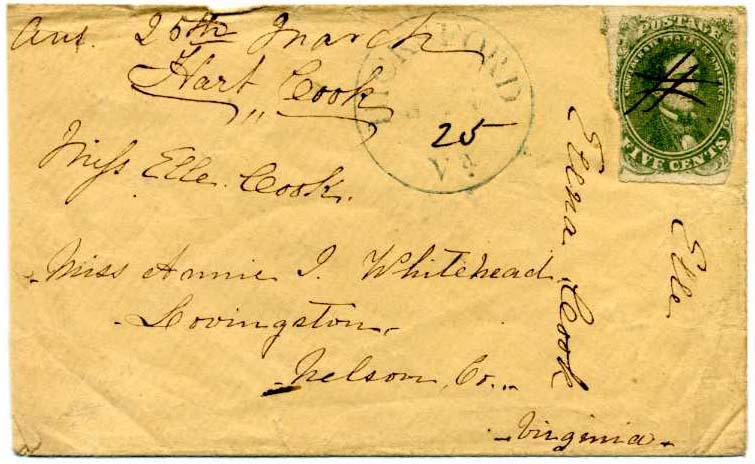 Ans. 25th March
Hart Cook
Miss Elle Cook.
Miss Annie I. Whitehead
Lovingston,
Nelson, Co.,
Virginia
Ellena Cook
Elle
25
VA
POSTAGE
FIVE CENTS